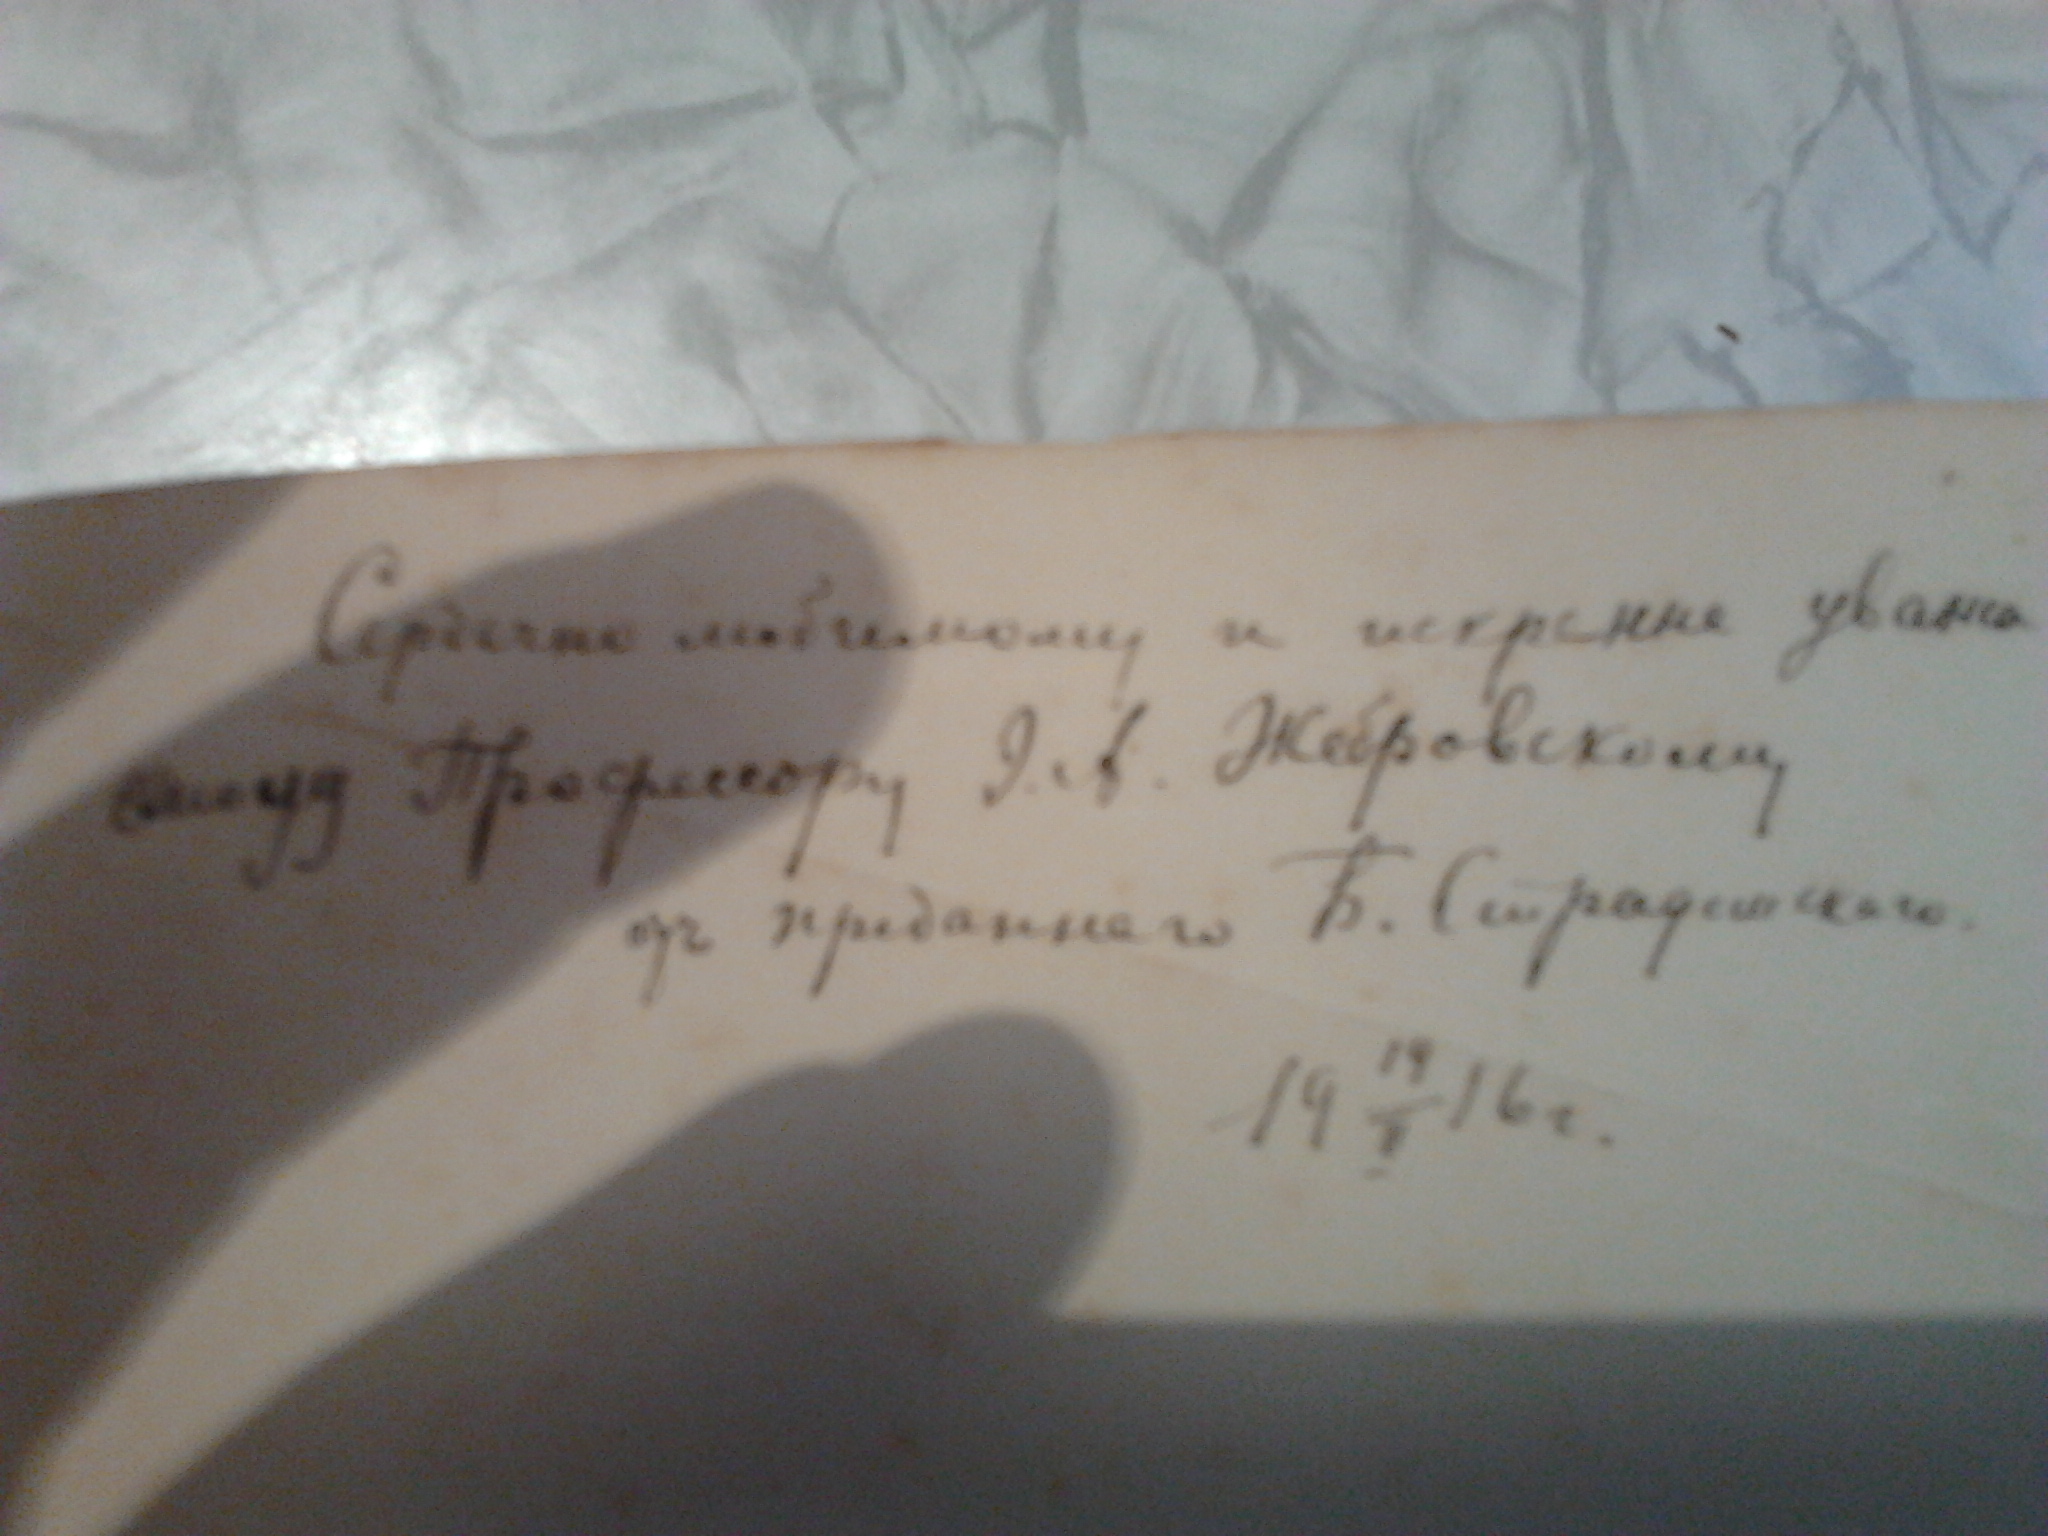 Сердечно любимому и искренне уважа
емому Профессору Э. А. Жебровскому
отъ преданнаго Б. Страдомскаго.
19 19/V 16 г.